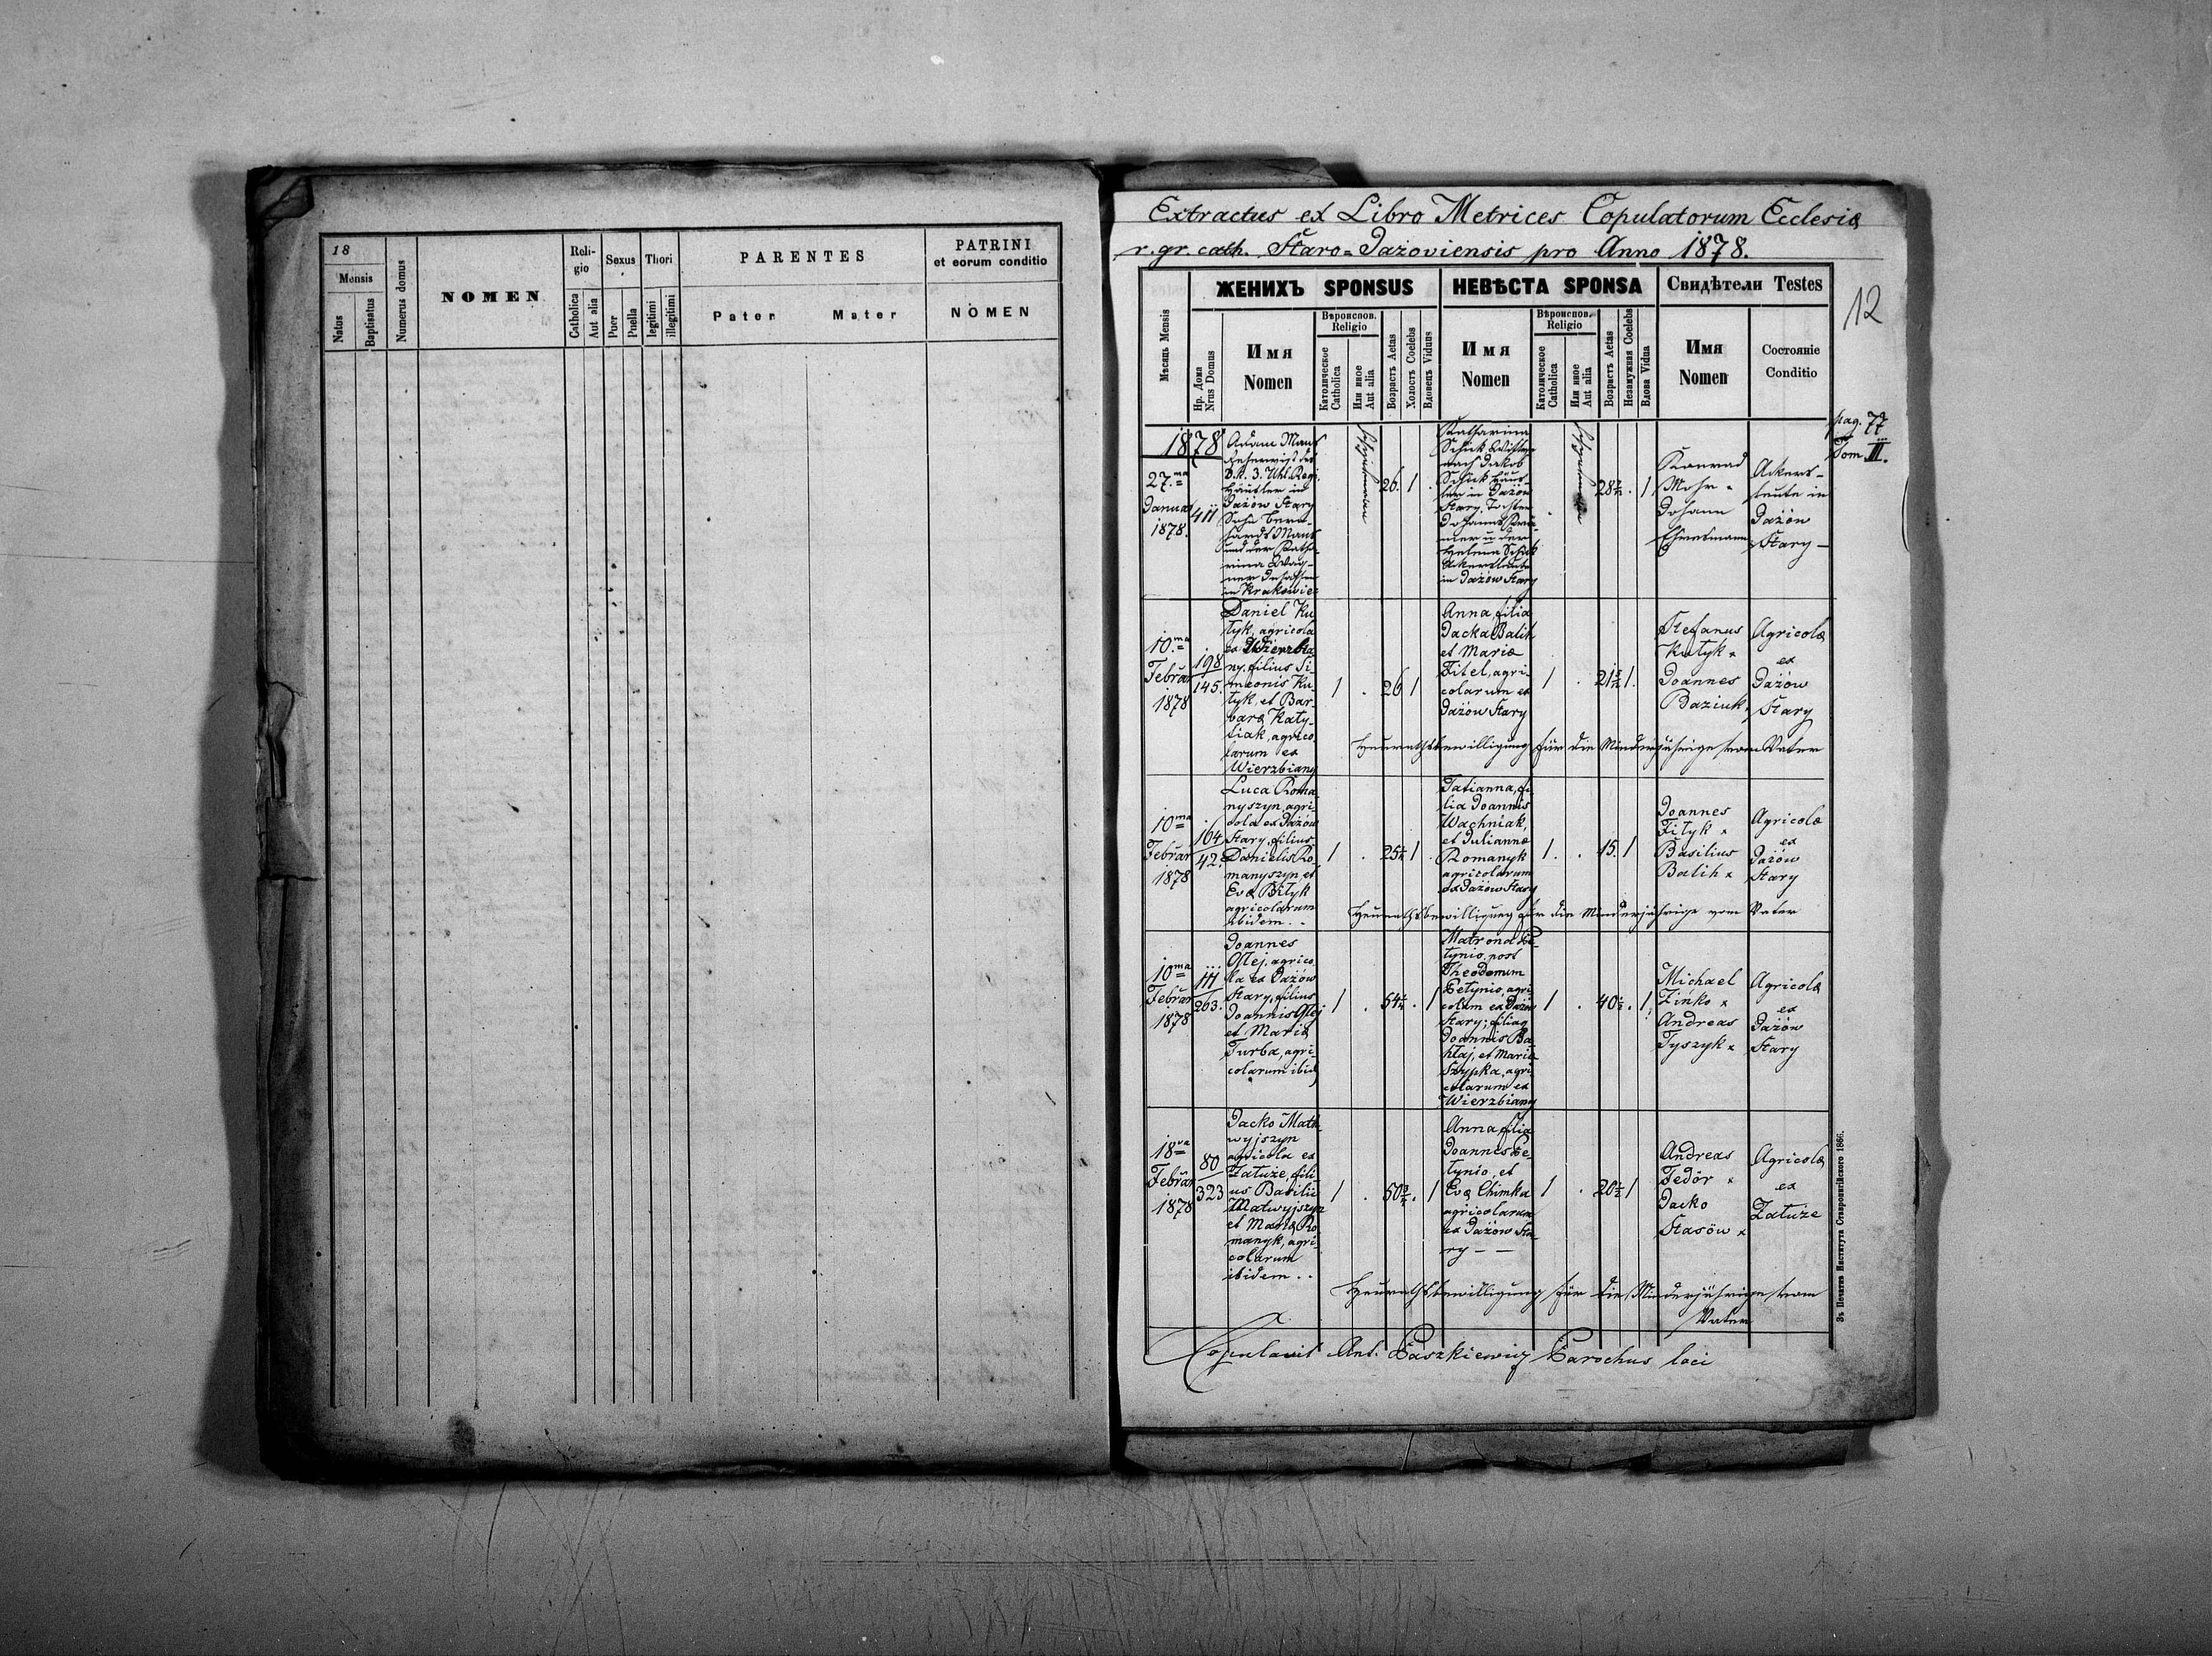 18
Mensis
Natus
Baptisatus
Numerus domus
NOMEN
Reli-
gio
Catholica
Aut alia
Sexus
Puer
Puella
Thori
legitimi
illegitimi
PARENTES
Pater Mater
PATRINI
et eorum conditio
NOMEN
Extractus ex Libro Metrices Copulatorum Ecclesiæ
r. gr. cath. Staro=Jażoviensis pro Anno 1878.
12
Мѣсяць Mensis
ЖЕНИХЪ SPONSUS
Нр. Дома
Nrus Domus
Имя
Nomen
Вѣроиспов.
Religio
Католическое
Catholica
Или иное
Aut alia
Возрастъ Aetas
Холостъ Coelebs
Вдовецъ Viduus
НЕВѢСТА SPONSA
Имя
Nomen
Вѣроиспов.
Religio
Католическое
Catholica
Или иное
Aut alia
Возрастъ Aetas
Незамужная Coelebs
Вдова Vidua
Свидѣтели Testes
Имя
Nomen
Состояніе
Conditio
pag. 77
Tom III.
1878
27.ma
Januar
1878.
411
Adam Manz
des
3. Uhl. Regi.
Häusler in
Jażów Stary
Sohn Bern-
hards Manz
und der Katha-
rina Wag-
ner
in Krakowiec
26. 1 .
Katharina
Schick Wittwe
nach Jakob
Schick Häus-
ler in Jażów
Stary, Tochter
Johanns
und der
Helena Schick
Akersleute
in Jażów Stary
28 . 1
Konrad
Mohr -
Johann
Ehretmann
Akers-
leute in
Jażów
Stary -
10.ma
Februar
1878
198
145.
Daniel Ku-
tyk, agricola
ex Wierzbia-
ny, filius Si-
meonis Ku-
tyk, et Bar-
baræ Katy-
niak, agrico-
larum ex
Wierzbiany
1 . 26 1
Anna, filia
Jacka Balih
et Mariæ
Fitel, agri-
colarum ex
Jażów Stary
1 . 21 1.
Stefanus
Kutyk x
Joannes
Baziuk x
Agricolæ
ex
Jażów
Stary
Heurathsbewilligung für die Minderjährige vom Vater
10ma
Februar
1878
164
42.
Luca Roma-
nyszyn, agri-
cola ex Jażów
Stary, filius
Danielis Ro-
manyszyn et
Evæ Bityk
agricolarum
ibidem. .
1 . 25 1 .
Tatianna, fi-
lia Joannis
Wachniak,
et Juliannæ
Romanyk
agricolarum
ex Jażów Stary
1. . 15. 1
Joannes
Fityk x
Basilius
Balih x
Agricolæ
ex
Jażów
Stary
Heurathsbewilligung für die Minderjährige vom Vater
10ma
Februar
1878
111
263.
Joannes
Olej, agrico-
la ex Jażów
Stary, filius
Joannis Olej
et Mariæ
Turba, agri-
colarum ibid.
1 . 54 . 1
Matrona Pe-
tynio, post
Theodorum
Petynio, agri-
colam ex Jażów
Stary; filia
Joannis Ba-
htaj, et Mariæ
Szypka, agri-
colarum ex
Wierzbiany
1 . 40 . 1.
Michael
Zinko x
Andreas
Tyszyk x
Agricolæ
ex
Jażów
Stary
18va
Februar
1878
80
323
Jacko Mat-
wyjszyn
agricola ex
Załuże, fili-
us Basilii
Matwyjszyn
et Mariæ Ro-
manyk, agri-
colarum
ibidem. .
1 . 50 . 1
Anna filia
Joannes Pe-
tynio, et
Evæ Chimka
agricolarum
ex Jażów Sta-
ry - -
1 . 20 1
Andreas
Fedór x
Jacko
Stasów x
Agricolæ
ex
Załuże
Heurathsbewilligung für die Minderjährige vom
Vater
Copulavit Ant. Paszkiewicz Parochus loci
Зъ Печатнѣ Института Ставропигійского 1866.